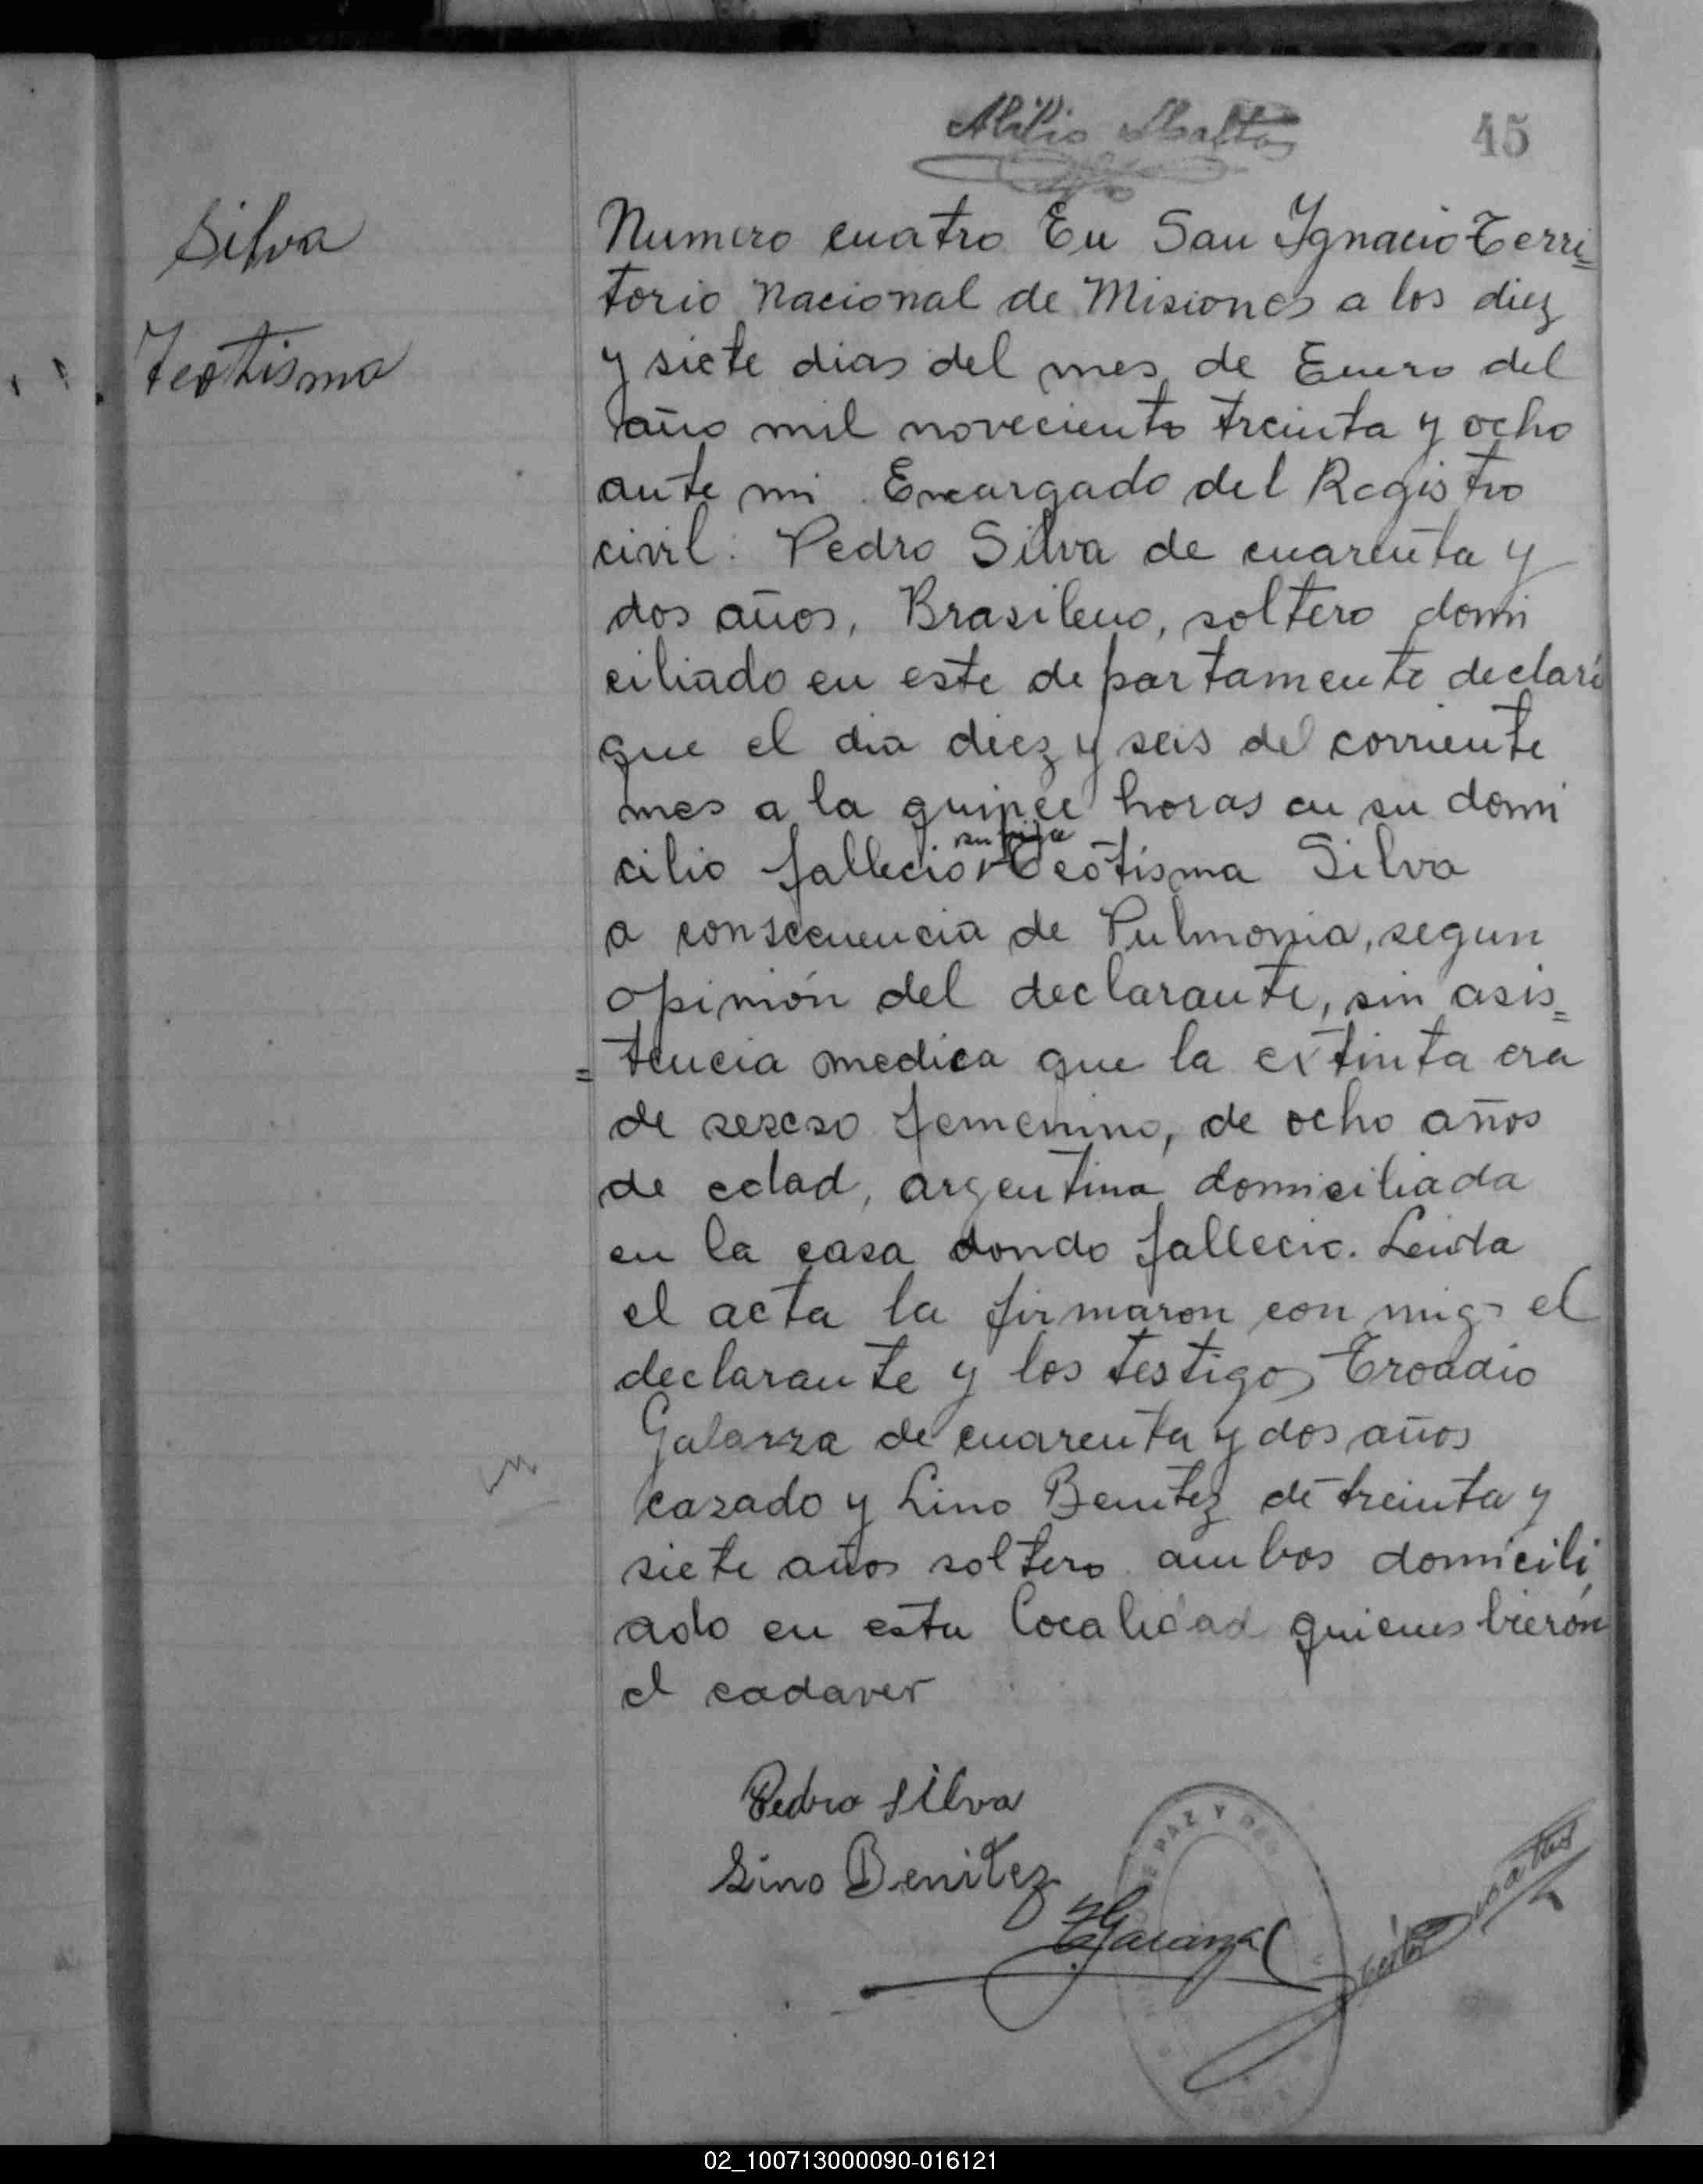 45
Silva
Teotisma
Numero cuatro En San Ygnacio Terri=
torio Nacional de Misiones a los diez
y siete dias del mes de Enero del
año mil noveciento treinta y ocho
ante mi Encargado del Registro
civil: Pedro Silva de cuarenta y
dos años, Brasileno, soltero domi
ciliado en este departamente declaró
que el dia diez y seis del corriente
mes a la quince horas en su domi
cilio fallecio su hija Teotisma Silva
a consecuencia de Pulmonia, segun
opinión del declarante, sin asis=
=tencia medica que la extinta era
de sexeso femenino, de ocho años
de edad, argentina domiciliada
en la casa dondo fallecio. Leida
el acta la firmaron con migo el
declarante y los testigos Troadio
Galarza de cuarenta y dos años
casado y Lino Benitez de treinta y
siete años soltero ambos domicili
ado en esta localidad quienes bierón
el cadaver
Pedro Silva
Lino Benitez
PAZ Y
02_100713000090-016121